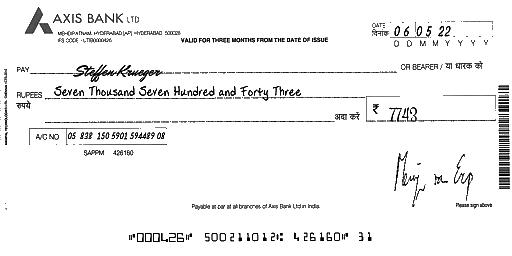 AXIS BANK LTD
MEHDIPATNAM, HYDERABAD [AP] HYDERABAD 500028
IFS CODE - UTIB0000426
VALID FOR THREE MONTHS FROM THE DATE OF ISSUE
DATE
दिनांक 06 05 22
D D M M Y Y Y Y
PAY Steffen Krueger OR BEARER / या धारक को
RUPEES Seven Thousand Seven Hundred and Forty Three
रुपये अदा करें ₹ 7743
A/C NO 05 838 150 5901 594489 08
SAPPM 426160
Payable at par at all branches of Axis Bank Ltd in India.
Please sign above
"000426" 500211012: 426160" 31